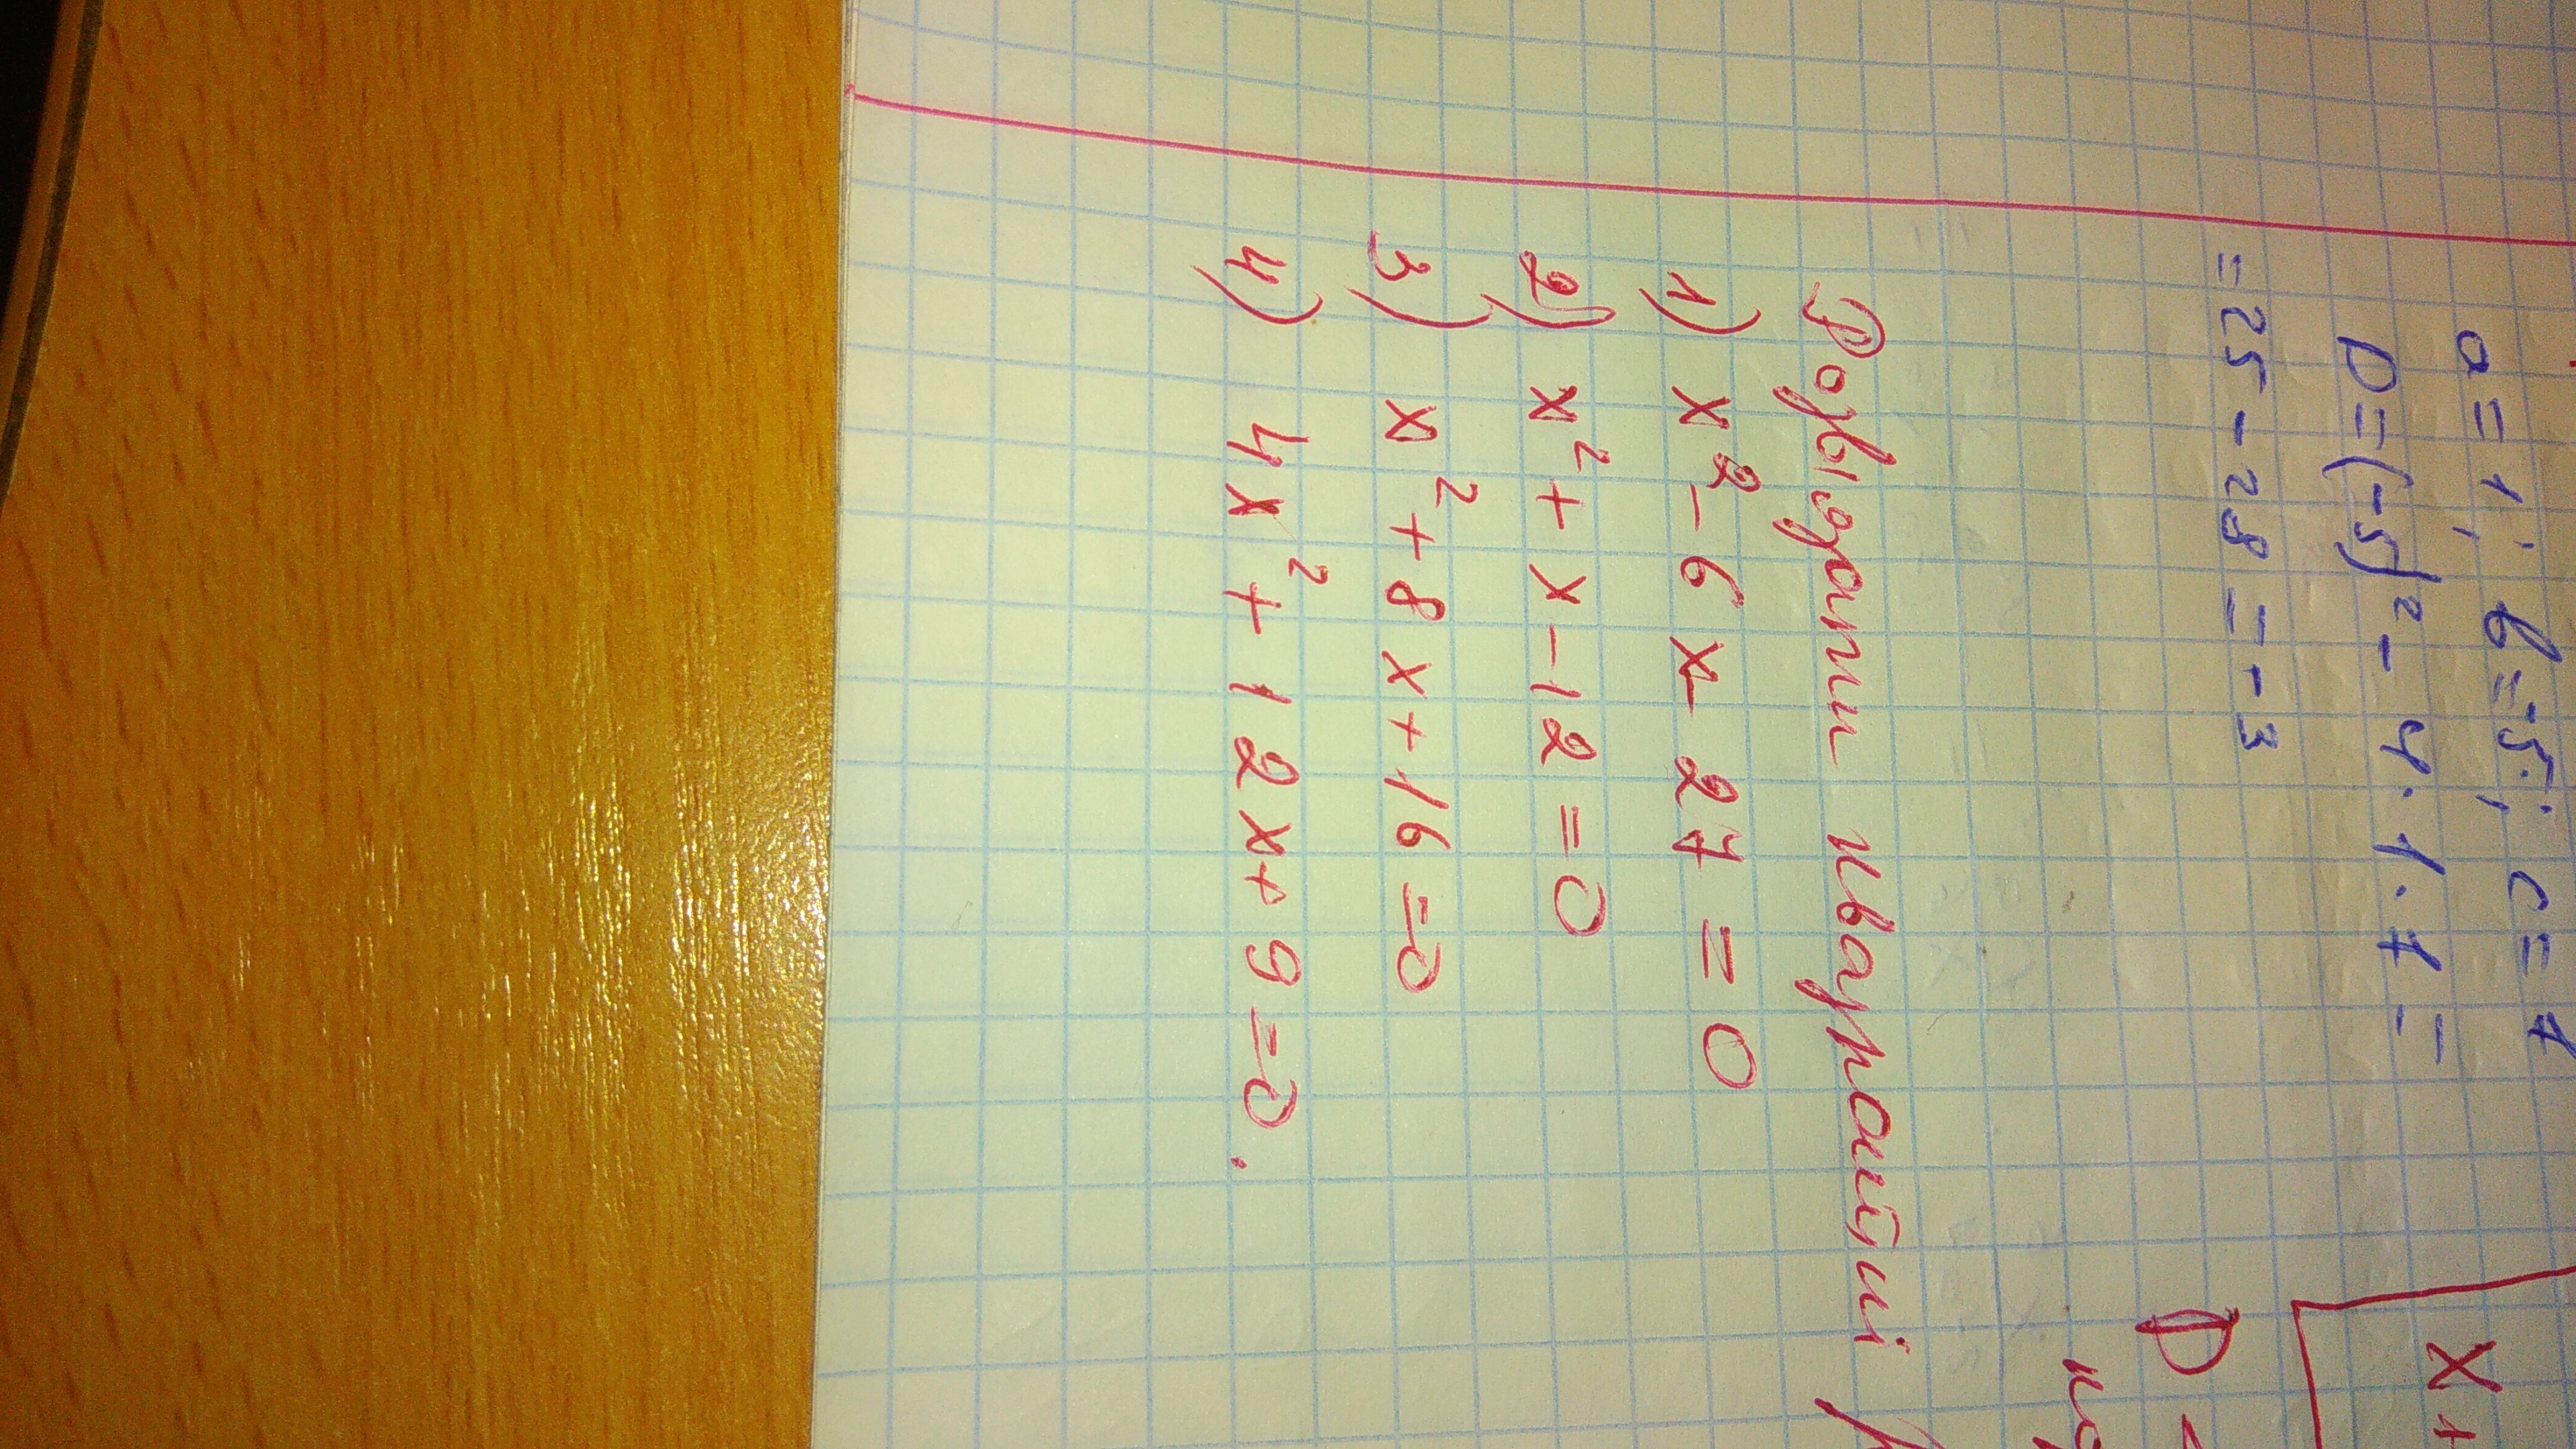 a = 1; b = -5; c = 7
D = (-5)² - 4 · 1 · 7 =
= 25 - 28 = -3
D <
Розв'язати квадратні
1) x² - 6x - 27 = 0
2) x² + x - 12 = 0
3) x² + 8x + 16 = 0
4) 4x² + 12x + 9 = 0.